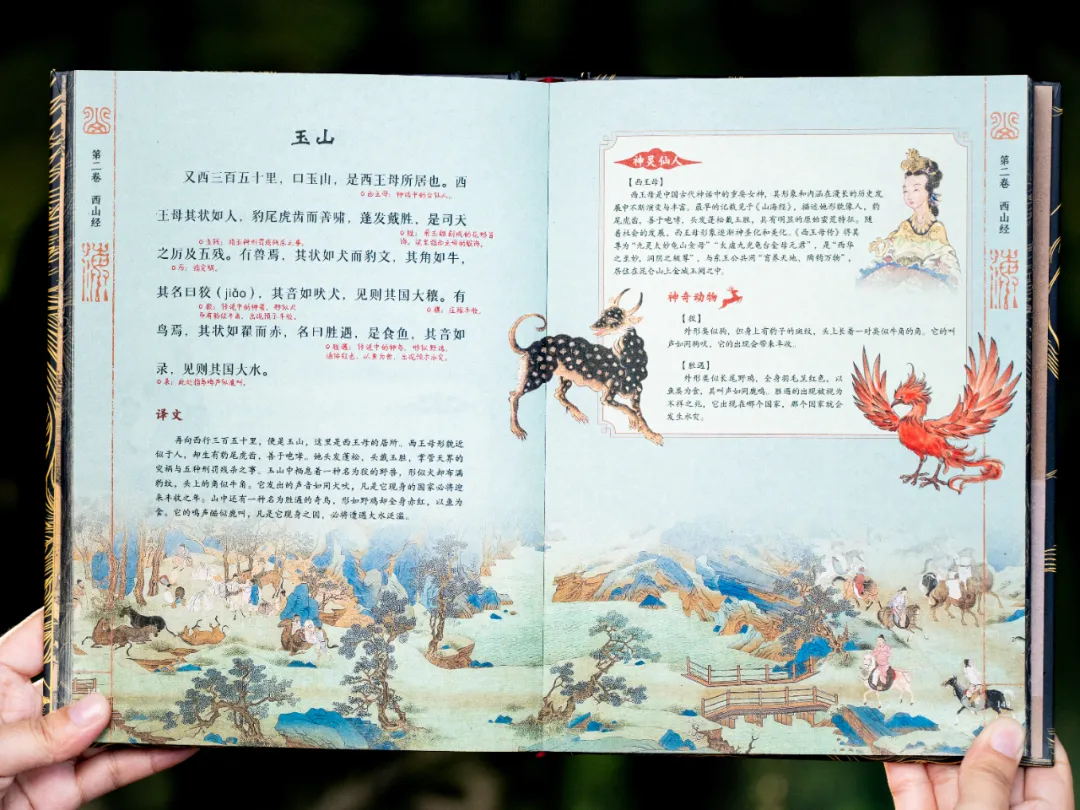 第二卷 西山经
玉山
又西三百五十里，曰玉山，是西王母所居也。西
西王母：神话中的女仙人。
王母其状如人，豹尾虎齿而善啸，蓬发戴胜，是司天
五残：指五种刑罚残杀之事。
之厉及五残。有兽焉，其状如犬而豹文，其角如牛，
其名曰狡（jiǎo），其音如吠犬，见则其国大穰。有
穰：庄稼丰收。
鸟焉，其状如翟而赤，名曰胜遇，是食鱼，其音如
录，见则其国大水。
录：此处指鸟鸣声似鹿叫。
译文
再向西行三百五十里，便是玉山，这里是西王母的居所。西王母形貌近
似于人，却生有豹尾虎齿，善于咆哮。她头发蓬松，头戴玉胜，掌管天界的
灾祸与五种刑罚残杀之事。玉山中栖息着一种名为狡的野兽，形似犬却布满
豹纹，头上的角似牛角。它发出的声音如同犬吠，凡是它现身的国家必将迎
来丰收之年。山中还有一种名为胜遇的奇鸟，形如野鸡却全身赤红，以鱼为
食。它的鸣声酷似鹿叫，凡是它现身之国，必将遭遇大水泛滥。
神灵仙人
【西王母】
西王母是中国古代神话中的重要女神，其形象和内涵在漫长的历史发
展中不断演变与丰富。最早的记载见于《山海经》，描述她形貌像人，豹
尾虎齿，善于咆哮，头发蓬松戴玉胜，具有明显的原始蛮荒特征。随
着社会的发展，西王母形象逐渐神圣化和美化，《西王母传》将其
尊为“九灵太妙龟山金母”“太虚九光龟台金母元君”，是“西华
之至妙，洞阴之极尊”，与东王公共同“育养天地，陶钧万物”，
居住在昆仑山上金城玉阙之中。
神奇动物
【狡】
外形类似狗，但身上有豹子的斑纹，头上长着一对类似牛角的角。它的叫
声如同狗吠，它的出现会带来丰收。
【胜遇】
外形类似长尾野鸡，全身羽毛呈红色，以
鱼类为食，其叫声如同鹿鸣。胜遇的出现被视为
不祥之兆，它出现在哪个国家，那个国家就会
发生水灾。
第二卷 西山经